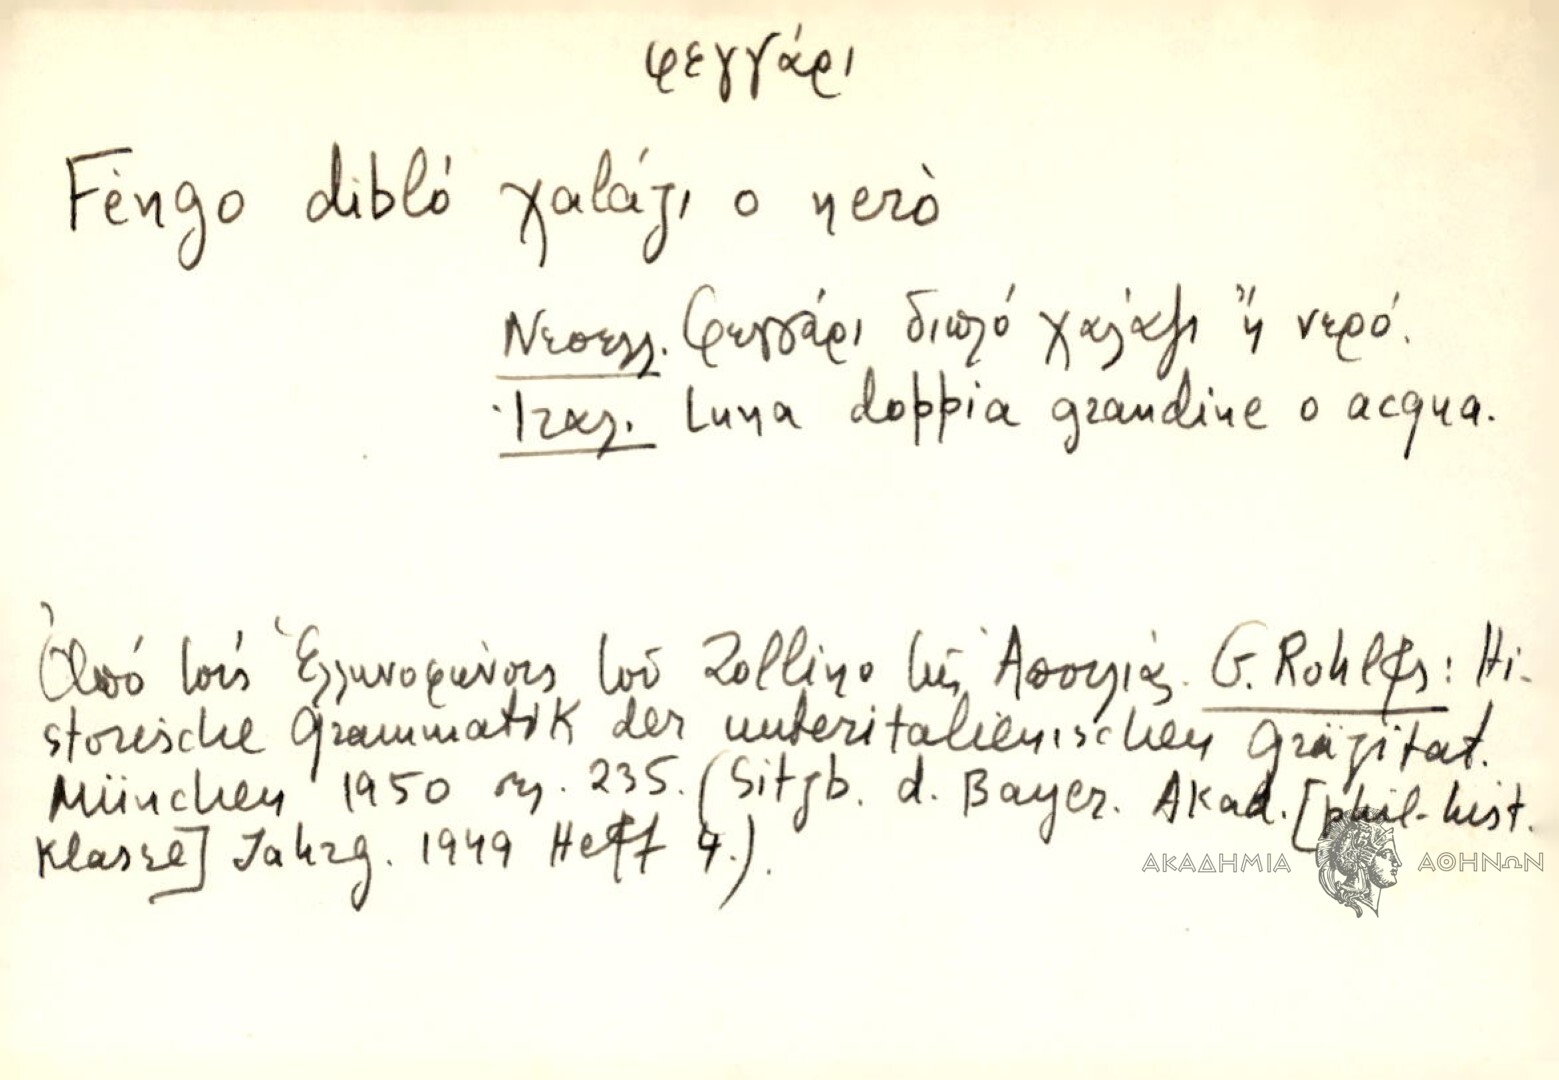 φεγγάρι
Fèngo dibló χaláζι o nerò
Νεοελλ. Φεγγάρι διπλό χαλάζι ἤ νερό.
Ἰταλ. Luna doppia grandine o acqua.
Ἀπό τούς Ἑλληνοφώνους τοῦ Zollino τῆς Ἀπουλίας. G. Rohlfs: Hi-
storische Grammatik der unteritalienischen Gräzitat.
München 1950 σελ. 235. (Sitzb. d. Bayer. Akad. [phil-hist.
Klasse] Jahrg. 1949 Heft 4.).
ΑΚΑΔΗΜΙΑ ΑΘΗΝΩΝ